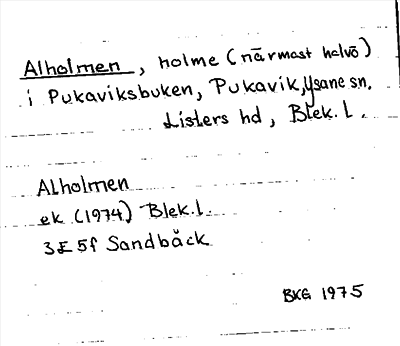 Alholmen, holme (närmast halvö)
i Pukaviksbuken, Pukavik, Ysane sn.
Listers hd, Blek. l.
Alholmen
ek (1974) Blek. l.
3E 5f Sandbäck
BKG 1975